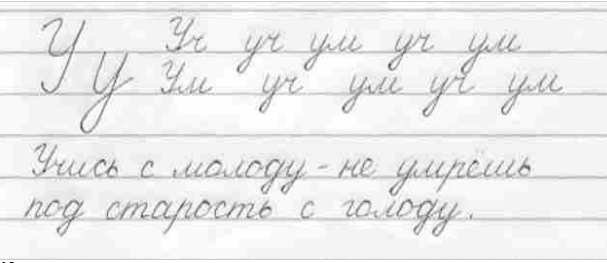 У Уч уч ум уч ум
у Ум уч ум уч ум
Учись с молоду - не умрёшь
под старость с голоду.